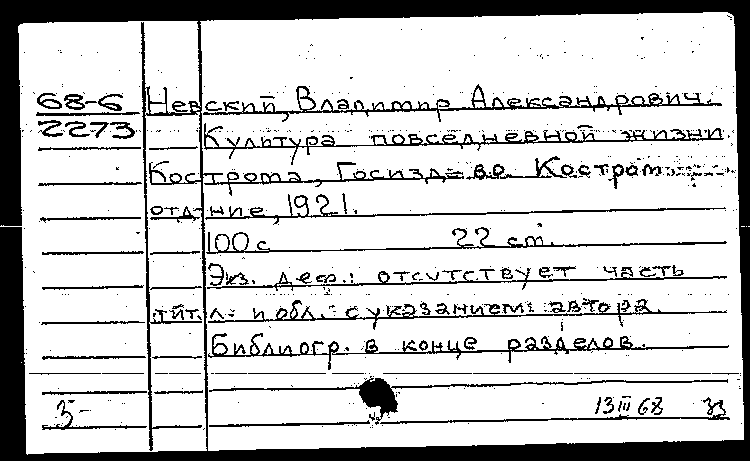 68-6 Невский, Владимир Александрович.
2273 Культура повседневной жизни
Кострома, Госизд-во Костром.
отд-ние, 1921.
100 с 22 cm.
Экз. деф.: отсутствует часть
тит. л. и обл. с указанием автора.
Библиогр. в конце разделов.
3- 13 III 68 зз